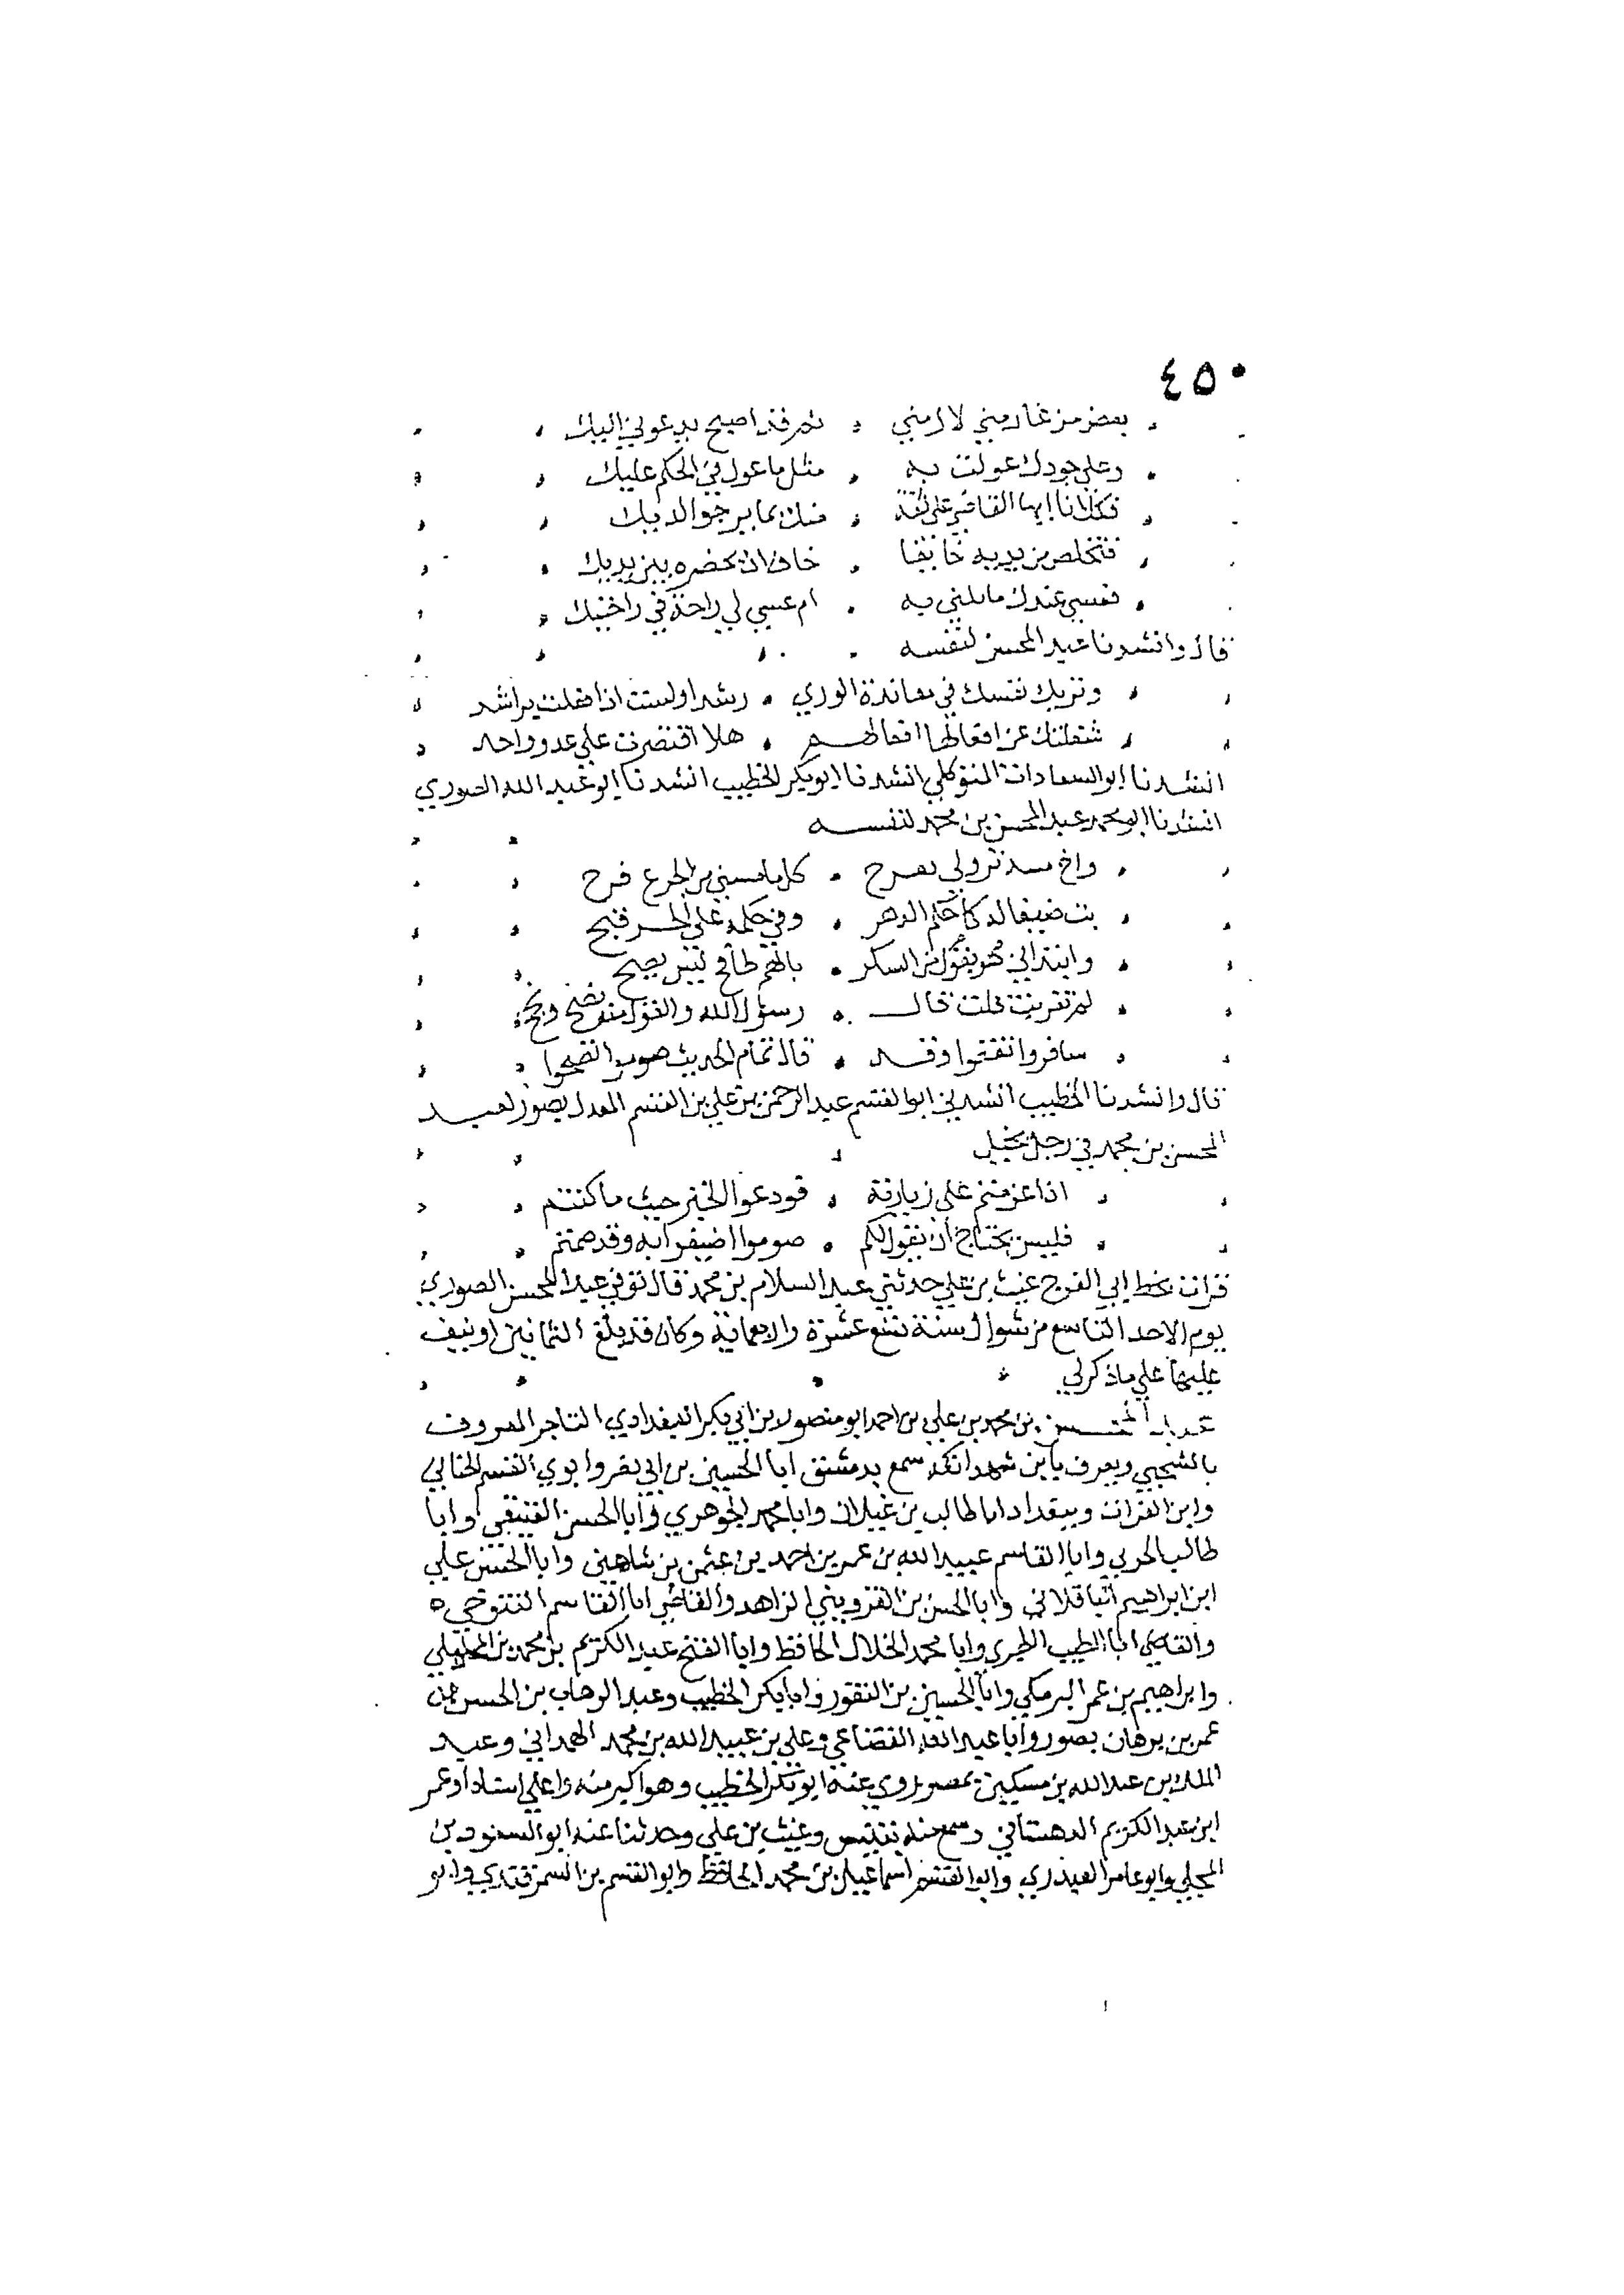 ٤٥٠
بعض من غارمني لازمني ثم قد اصبح يدعوني اليك
وعلي جودك عولت به مثل ما عول في الحكم عليك
فكلانا ايها القاضي علي ثقة منك بما يرجو لديك
فتخلص من يديه خائفا خاف ان تحضره بين يديك
فعسي عندك ما يلني به ام عسي لي راحة في راحتيك
قال وانشدنا عبد المحسن لنفسه
وتريك نفسك في معاندة الوري رشدا ولست اذا فعلت براشد
شغلتك عن افعالها افعالهم هلا اقتصرت علي عدو واحد
انشدنا ابو السعادات المتوكلي انشدنا ابو بكر الخطيب انشدنا ابو عبد الله الصوري
انشدنا ابو محمد عبد المحسن بن محمد لنفسه
واخ مسه نزولي بقرح كل ما مسني من الجرع قرح
بت ضيفا له كما حكم الدهر وفي حكمه علي الحر قبح
وابتداني هو يقول من السكر بالهم طافح ليس يصح
لم تغربت قلت قال رسول الله والقول منه نصح ونجح
سافروا تغنموا وقد قال تمام الحديث صوموا تصحوا
قال وانشدنا الخطيب انشدني ابو القسم عبد الرحمن بن علي بن القسم المعدل بصور لعبد
المحسن بن محمد في رجل بخيل
اذا عزمتم علي زيارته فودعوا الخبز حيث ما كنتم
فليس يحتاج ان يقول لكم صوموا اضيفوا به وقد صمتم
قرات بخط ابي الفرج غيث بن علي حدثني عبد السلام بن محمد قال توفي عبد المحسن الصوري
يوم الاحد التاسع من شوال سنة تسع عشرة واربعماية وكان قد بلغ الثمانين او نيف
عليها علي ما ذكر لي
عبد المحسن بن محمد بن علي بن احمد ابو منصور بن ابي بكر البغدادي التاجر المعروف
بالشيحي ويعرف بابن شهدانكه سمع بدمشق ابا الحسين بن ابي نصر وابوي القسم الحنائي
وابن الفرات وببغداد ابا طالب بن غيلان وابا محمد الجوهري وابا الحسن العتيقي وابا
طالب الحربي وابا القاسم عبيد الله بن عمر بن احمد بن عثمن بن شاهين وابا الحسن علي
ابن ابراهيم الباقلاني وابا الحسن بن القزويني الزاهد والقاضي ابا القاسم التنوخي ه
والقاضي ابا الطيب الطبري وابا محمد الخلال الحافظ وابا الفتح عبد الكريم بن محمد بن المحاملي
وابراهيم بن عمر البرمكي وابا الحسين بن النقور وابا بكر الخطيب وعبد الوهاب بن الحسن بن
عمر بن برهان بصور وابا عبد الله القضاعي وعلي بن عبيد الله بن محمد الهمداني وعبد
الملك بن عبد الله بن مسكين بمصر روي عنه ابو بكر الخطيب وهو اكبر منه واعلي اسنادا وعمر
ابن عبد الكريم الدهستاني وسمع منه بتنيس وغيث بن علي وحدثنا عنه ابو السعود بن
المجلي وابو عامر العبدري وابو القسم اسماعيل بن محمد الحافظ وابو القسم بن السمرقندي وابو